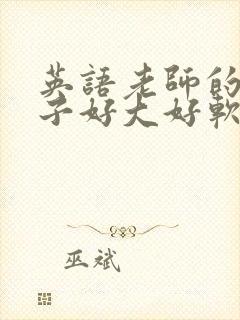 英語老師的
子好大好軟
巫斌